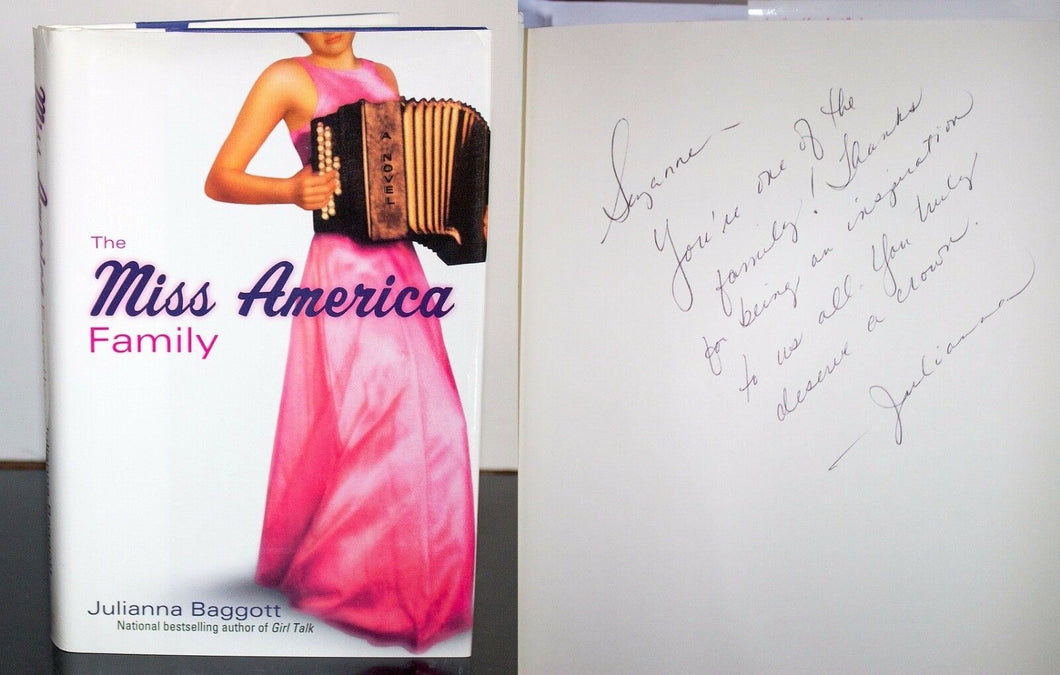 A NOVEL
The
Miss America
Family
Julianna Baggott
National bestselling author of Girl Talk
Suzanne —
You're one of the
family! Thanks
for being an inspiration
to us all. You truly
deserve a crown.
— Julianna